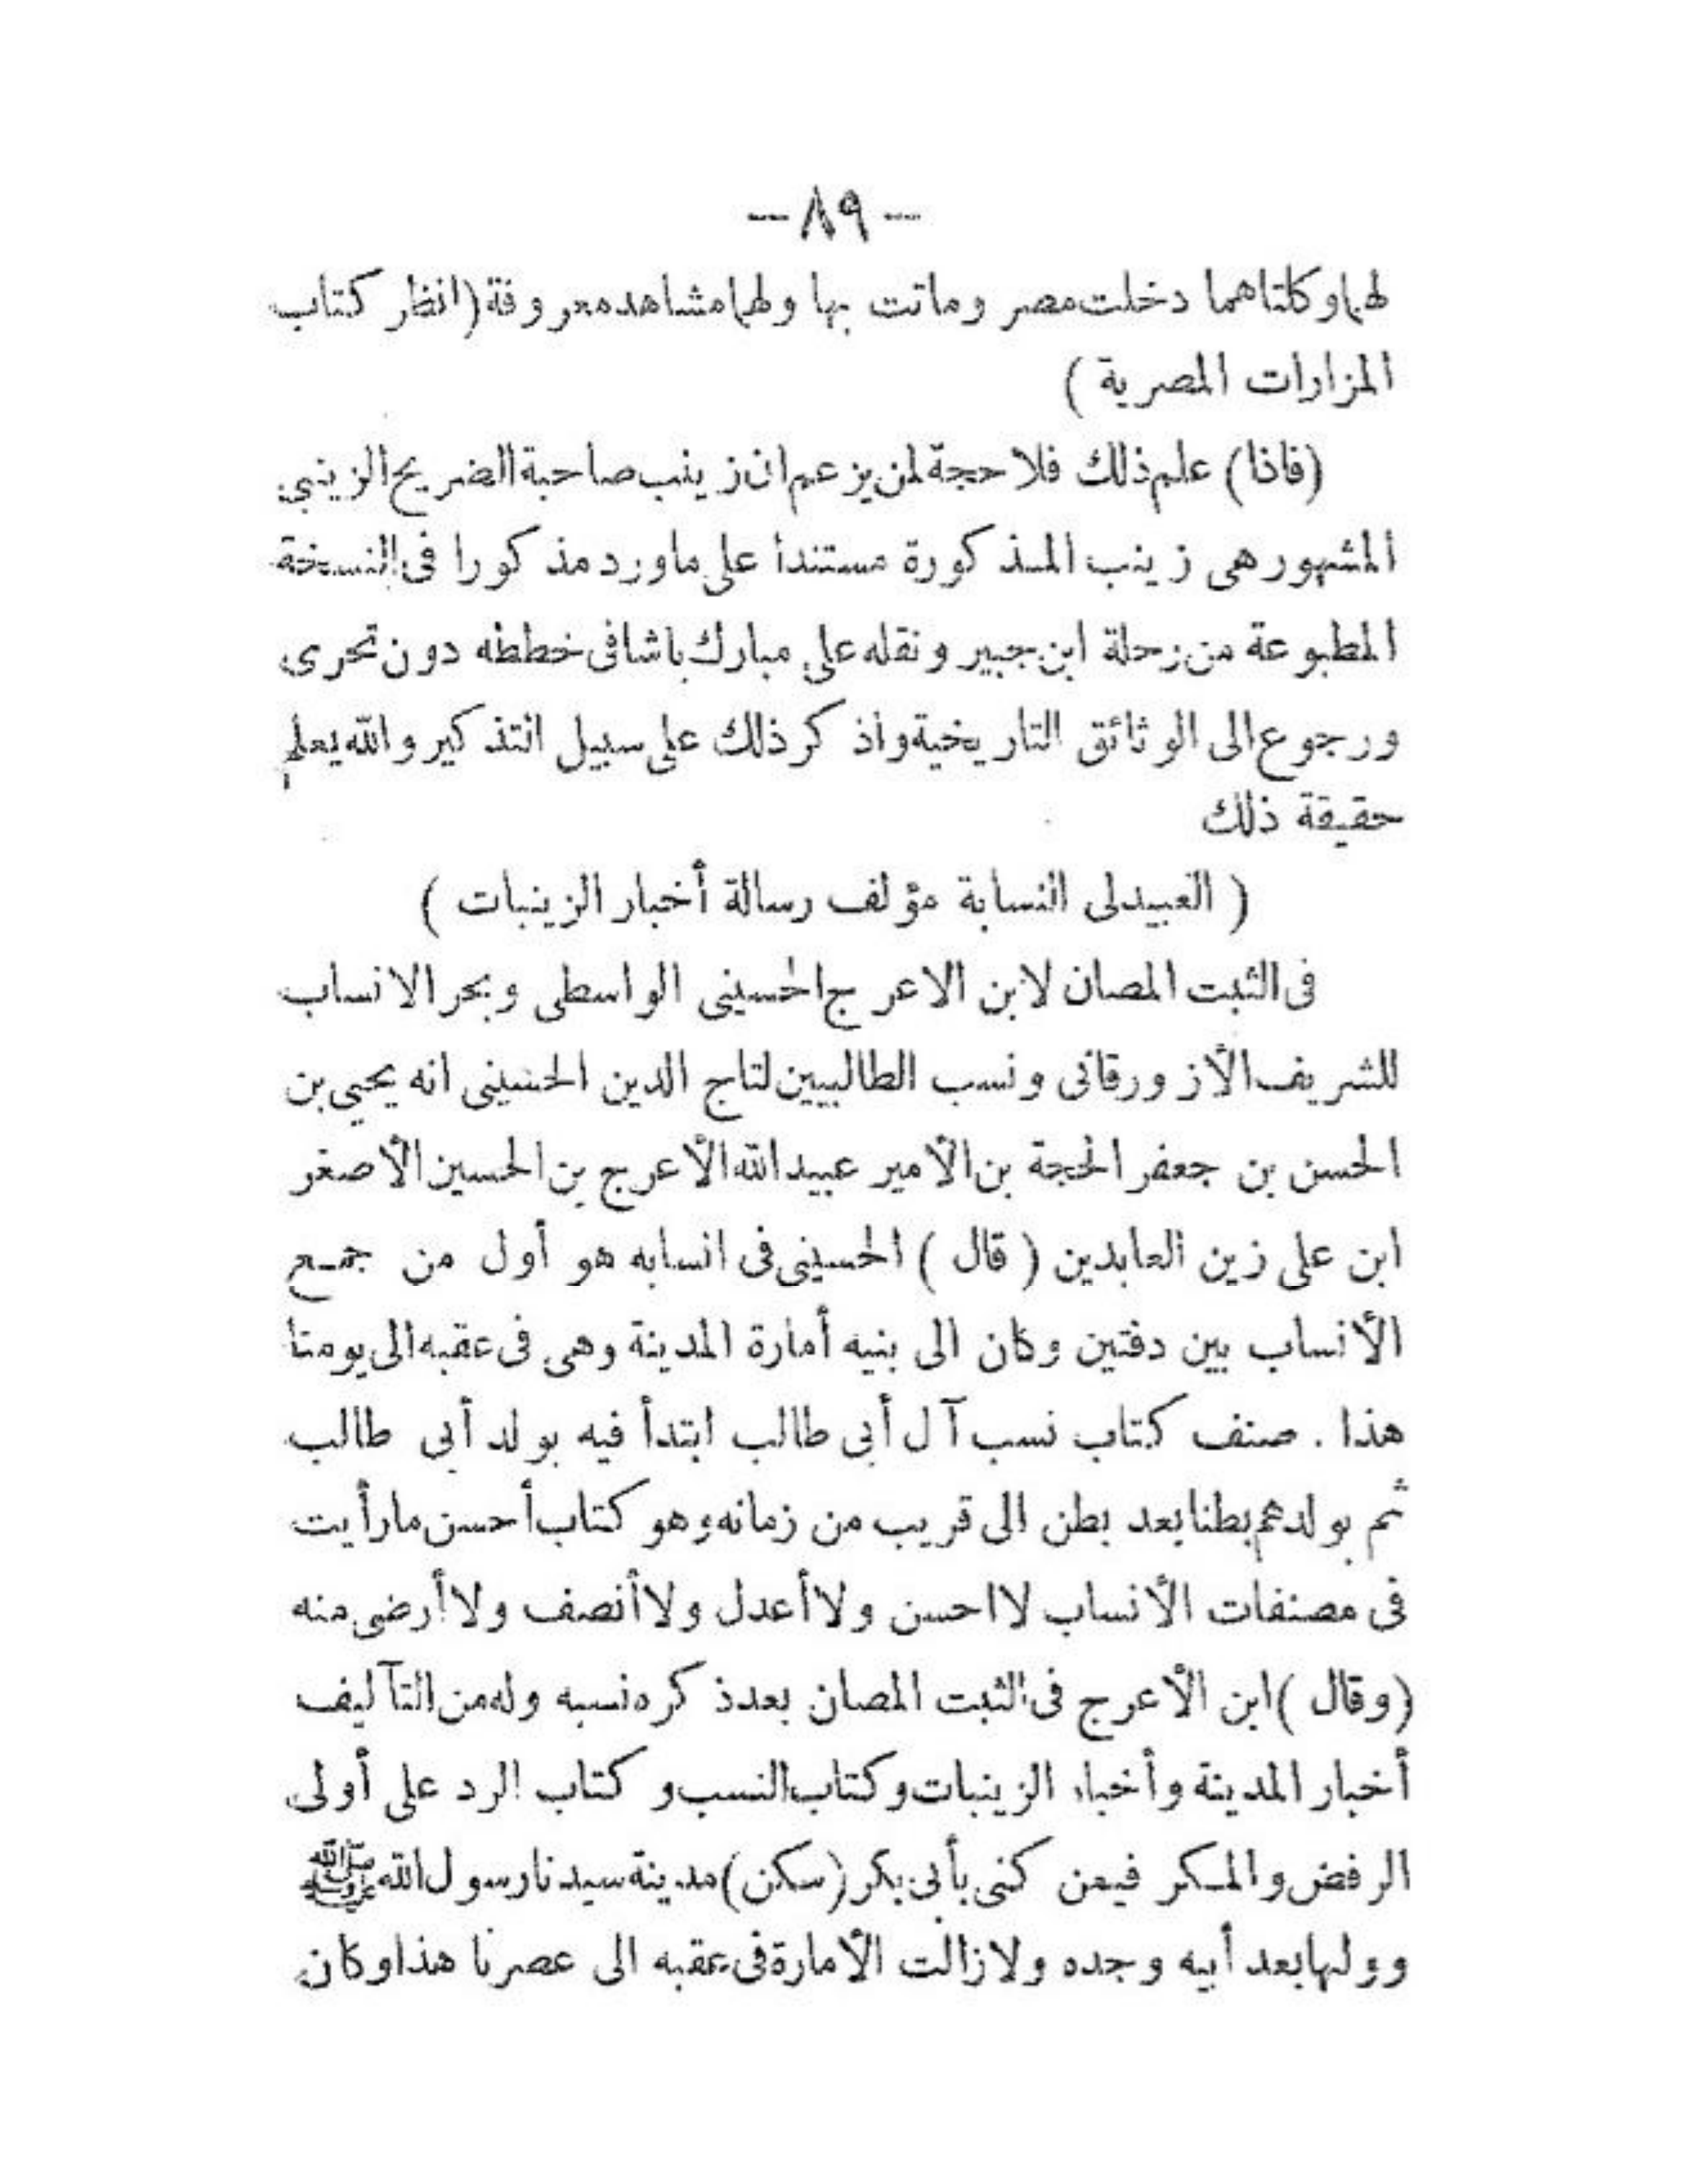 — ٨٩ —
لهما وكلتاهما دخلت مصر وماتت بها ولهما مشاهد معروفة (انظر كتاب
المزارات المصرية )
(فاذا) علم ذلك فلا حجة لمن يزعم ان زينب صاحبة الضريح الزينبي
المشهور هى زينب المذكورة مستندا على ماورد مذكورا فى النسخة
المطبوعة من رحلة ابن جبير ونقله على مبارك باشا فى خططه دون تحرى
ورجوع الى الوثائق التاريخية واذكر ذلك على سبيل التذكير والله يعلم
حقيقة ذلك
( العبيدلى النسابة مؤلف رسالة أخبار الزينبات )
فى الثبت المصان لابن الاعرج الحسينى الواسطى وبحر الانساب
للشريف الأزورقانى ونسب الطالبيين لتاج الدين الحسينى انه يحيى بن
الحسن بن جعفر الحجة بن الأمير عبيد الله الأعرج بن الحسين الأصغر
ابن على زين العابدين ( قال ) الحسينى فى انسابه هو أول من جمع
الأنساب بين دفتين وكان الى بنيه أمارة المدينة وهى فى عقبه الى يومنا
هذا . صنف كتاب نسب آل أبى طالب ابتدأ فيه بولد أبى طالب
ثم بولدهم بطنا بعد بطن الى قريب من زمانه وهو كتاب أحسن مارأيت
فى مصنفات الأنساب لا احسن ولا أعدل ولا أنصف ولا أرضى منه
(وقال ) ابن الأعرج فى الثبت المصان بعد ذكره نسبه وله من التآليف
أخبار المدينة وأخبار الزينبات وكتاب النسب و كتاب الرد على أولى
الرفض والمكر فيمن كنى بأبى بكر (سكن) مدينة سيدنا رسول الله ﷺ
وولها بعد أبيه وجده ولازالت الأمارة فى عقبه الى عصرنا هذا وكان